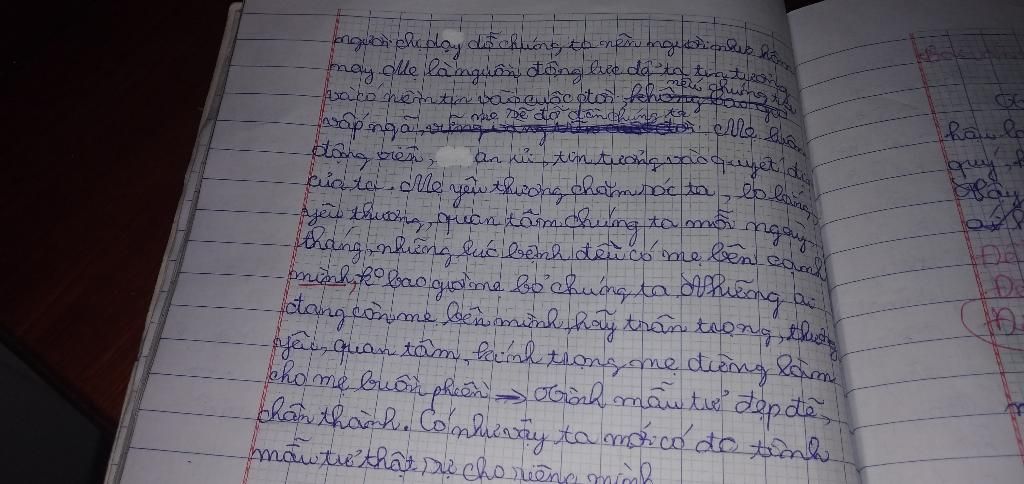 người chỉ dạy dỗ chúng ta nên người như hôm
nay. Mẹ là nguồn động lực để ta tin tưởng
và có niềm tin vào cuộc đời, nếu chúng ta
vấp ngã, mẹ sẽ đỡ dần chúng ta. Mẹ luôn
động viên, an ủi, tin tưởng vào quyết
của ta. Mẹ yêu thương chăm sóc ta, lo lắng,
yêu thương, quan tâm chúng ta mỗi ngày
tháng, những lúc bệnh đều có mẹ bên cạnh
mình, ko bao giờ mẹ bỏ chúng ta. Những ai
đang còn mẹ bên mình, hãy trân trọng, thương
yêu, quan tâm, kính trọng mẹ đừng làm
cho mẹ buồn phiền → tình mẫu tử đẹp đẽ,
chân thành. Có như vậy ta mới có đc tình
mẫu tử thật sự cho riêng mình
hầu
quý